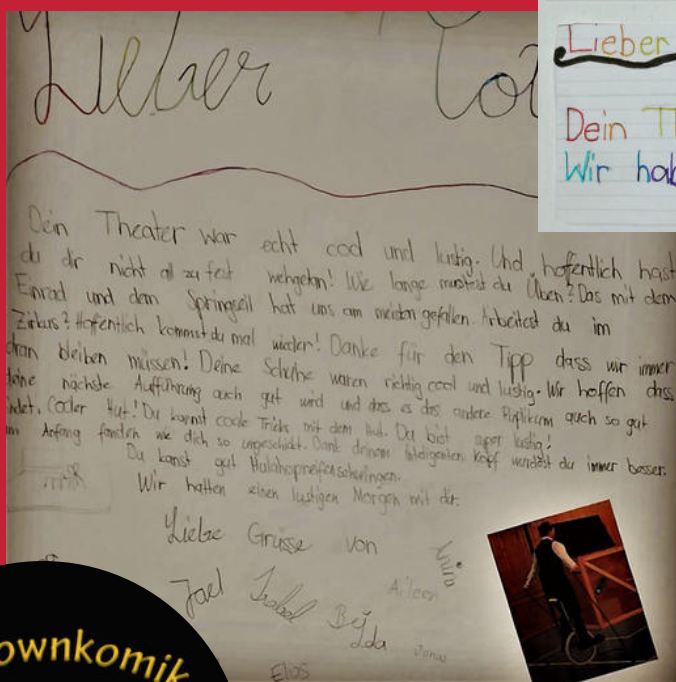 Lieber
Lieber
Dein
Wir
Dein Theater war echt cool und lustig. Und hoffentlich hast
du dir nicht al zu fest wehgetan! Wie lange musstest du Üben? Das mit dem
Einrad und dem Springseil hat uns am meisten gefallen. Arbeitest du im
Zirkus? Hoffentlich kommst du mal wieder! Danke für den Tipp dass wir immer
dran bleiben müssen! Deine Schuhe waren richtig cool und lustig. Wir hoffen dass
deine nächste Aufführung auch gut wird und das es das andere auch so gut
findet. Cooler Hut! Du kannst coole Tricks mit dem Hut. Du bist super lustig!
Am Anfang fanden wir dich so ungeschickt. Dank deinem Kopf du immer besser.
Du kanst gut
Wir hatten einen lustigen Morgen mit dir.
Liebe Grüsse von
Aileen
Joel Isabel
Elias
ownkomik